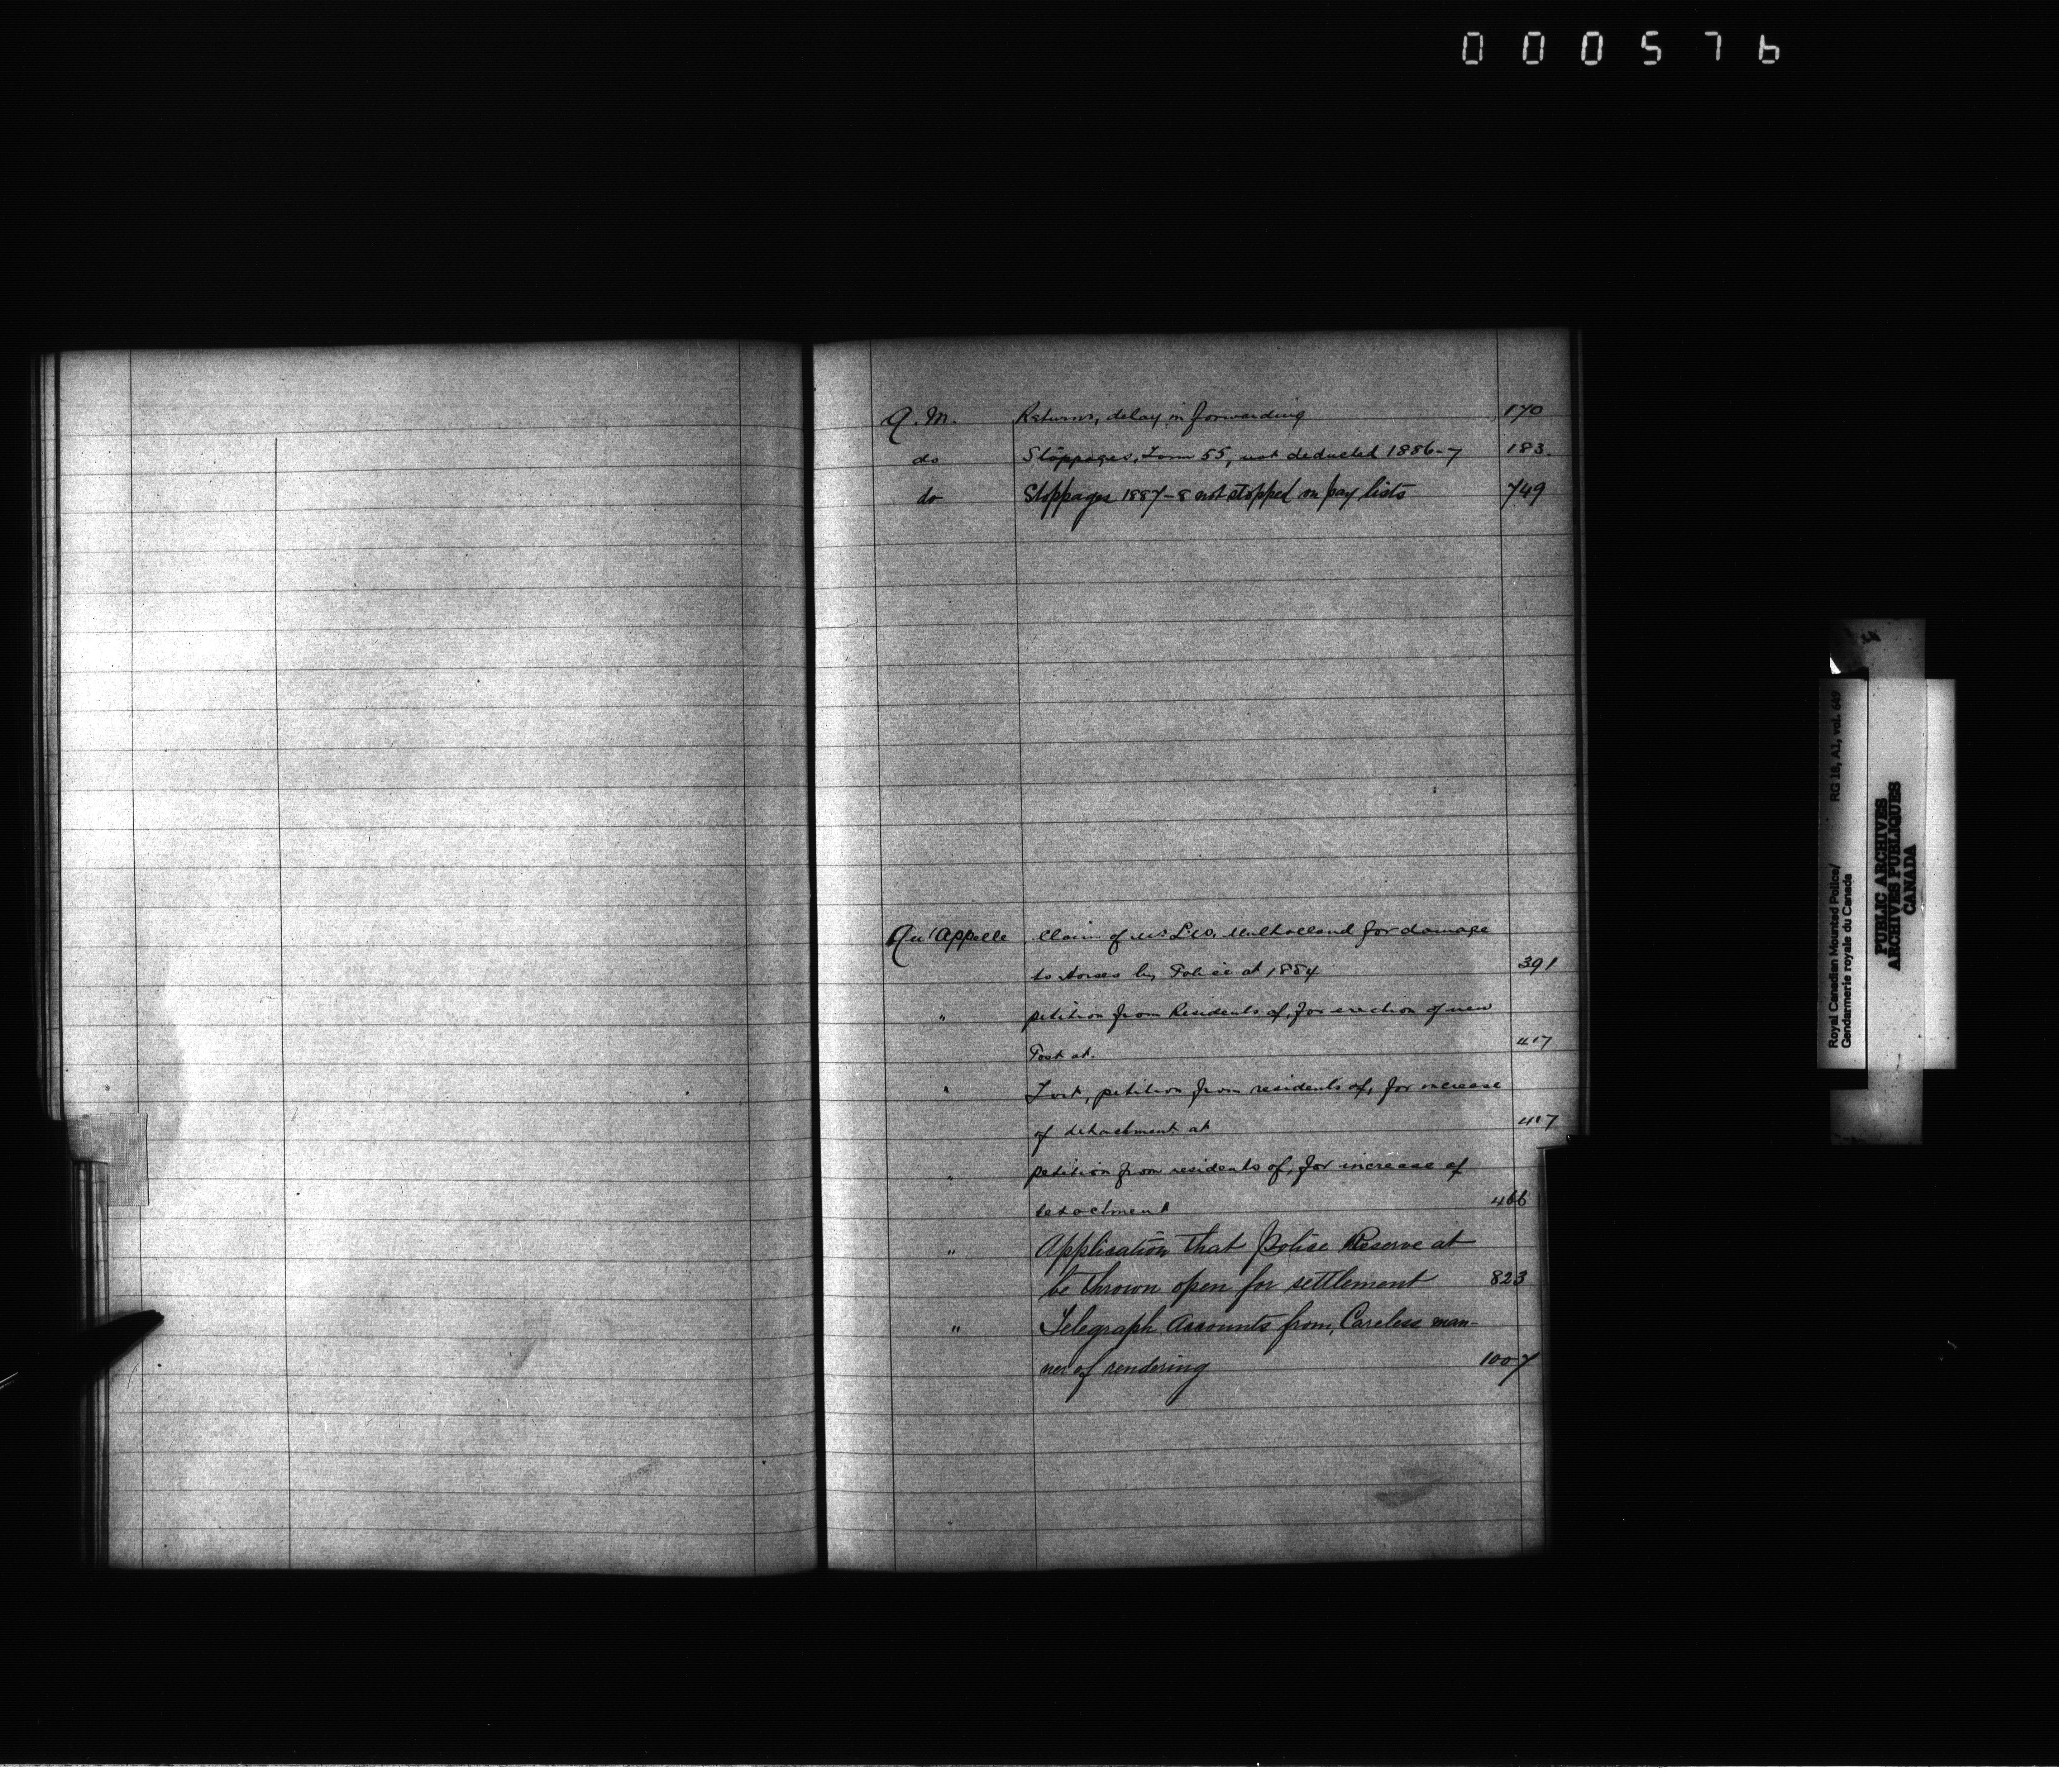 000576
Q. M. Returns, delay in forwarding 170
do Stoppages, Form 55, not deducted 1886-7 183.
do Stoppages 1887-8 not stopped on pay lists 749
Qu'Appelle Claim of L.W. Mulholland for damage
to horses by Police at 1884 391
" petition from Residents of, for erection of new
Post at. 417
" Fort, petition from residents of, for increase
of detachment at 417
" petition from residents of, for increase of
detachment 466
" Application that Police Reserve at
be thrown open for settlement 823
" Telegraph Accounts from, Careless man-
ner of rendering 1007
Royal Canadian Mounted Police/ RG 18, A1, vol. 649
Gendarmerie royale du Canada
PUBLIC ARCHIVES
ARCHIVES PUBLIQUES
CANADA